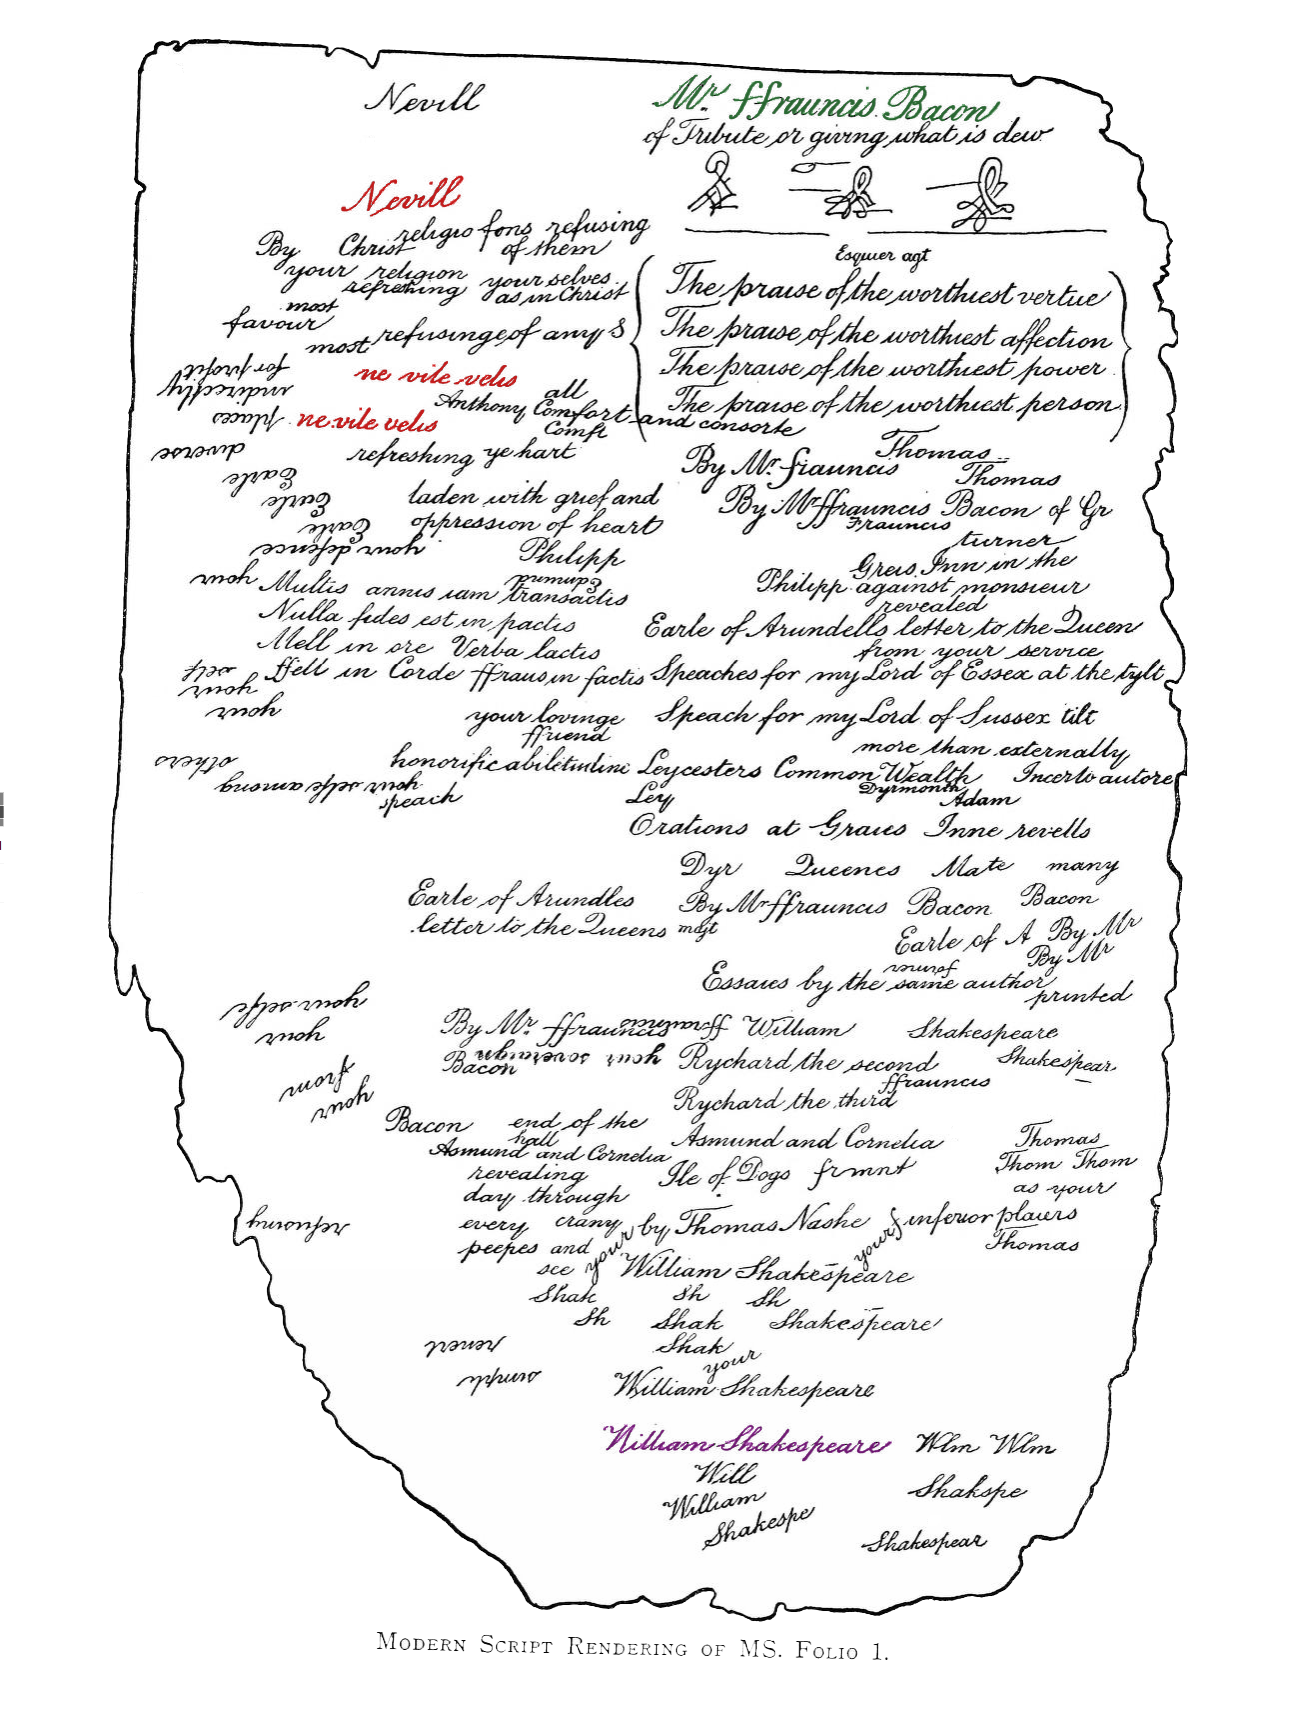 Nevill
Mr. ffrauncis. Bacon
of Tribute or giving what is dew
Nevill
religio fons refusing
By Christ of them
Esquier agt
your religion your selves
refreshing as in Christ
The praise of the worthiest vertue
most
favour
refusinge of any S
The praise of the worthiest affection
most
for profit
The praise of the worthiest power
ne vile velis
indirectly
all
Anthony Comfort and consorte
The praise of the worthiest person
places
ne vile velis
Comft
diverse
refreshing ye hart
Thomas
By Mr. ffrauncis
Thomas
Earle
Earle
laden with grief and
By Mr ffrauncis Bacon of Gr
Frauncis
Earle
oppression of heart
turner
your defence
Philipp
Greis Inn in the
your
Edmund
Multis annis iam transactis
Philipp against monsieur
revealed
Nulla fides est in pactis
Earle of Arundells letter to the Queen
Mell in ore Verba lactis
from your service
self
ffell in Corde ffraus in factis
Speaches for my Lord of Essex at the tylt
your
your
your lovinge
Speach for my Lord of Sussex tilt
ffriend
more than externally
others
honorificabiletudini
Leycesters Common Wealth Incerto autore
your selfe among
Dyrmonth
speach
Ley
Adam
Orations at Graies Inne revells
Dyr Queenes Mate many
Earle of Arundles
By Mr ffrauncis Bacon Bacon
letter to the Queens matt
Earle of A By Mr
By Mr
Essaies by the same author
printed
your selfe
By Mr. ffrauncis
ffrauncis
William Shakespeare
your
your soveraign
Bacon
Rychard the second Shakespear
ffrauncis
from
your
Rychard the third
Bacon end of the
hall
Asmund and Cornelia
Asmund and Cornelia
Thomas
revealing
Ile of Dogs frmnt
Thom Thom
day through
as your
every crany
by Thomas Nashe
inferior plaiers
peepes and
your
your
Thomas
see
William Shakespeare
Shak Sh Sh
Sh Shak Shakespeare
Shak
your
William Shakespeare
William Shakespeare Wlm Wlm
Will
Shakspe
William
Shakespe
Shakespear
MODERN SCRIPT RENDERING OF MS. FOLIO 1.